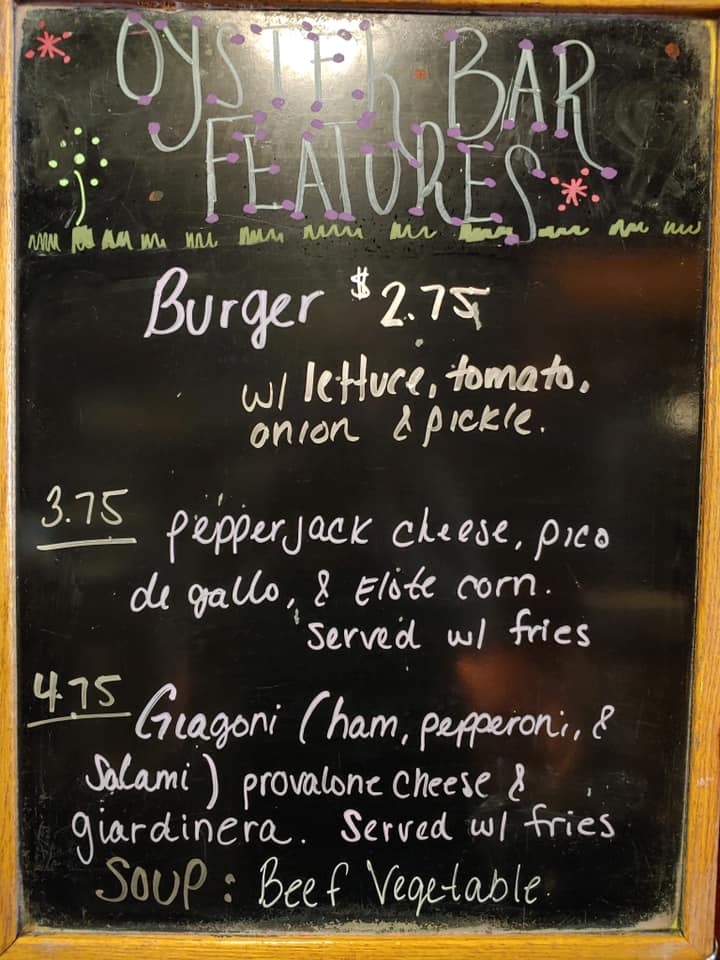 OYSTER BAR
FEATURES
Burger $2.75
w/ lettuce, tomato,
onion & pickle.
3.75 pepperjack cheese, pico
de gallo, & Elote corn.
Served w/ fries
4.75 Giagoni (ham, pepperoni, &
Salami) provalone cheese &
giardinera. Served w/ fries
SOUP: Beef Vegetable.